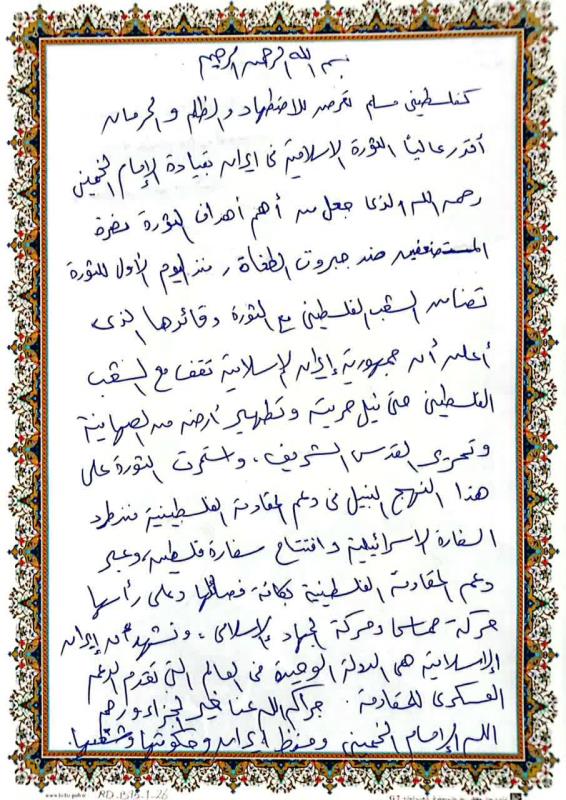 بسم الله الرحمن الرحيم
كفلسطيني مسلم تعرض للاضطهاد والظلم والحرمان
أقدر عالياً الثورة الإسلامية في ايران بقيادة الإمام الخميني
رحمه الله الذي جعل من أهم أهداف الثورة نصرة
المستضعفين ضد جبروت الطغاة, منذ اليوم الأول للثورة
تضامن الشعب الفلسطيني مع الثورة وقائدها الذي
أعلن أن جمهورية إيران الإسلامية تقف مع الشعب
الفلسطيني حتى نيل حريته وتطهير أرضه من الصهاينة
وتحرير القدس الشريف، واستمرت الثورة على
هذا النهج النبيل في دعم المقاومة الفلسطينية منذ طرد
السفارة الاسرائيلية وافتتاح سفارة فلسطين، وعبر
دعم المقاومة الفلسطينية بكافة فصائلها وعلى رأسها
حركة حماس وحركة الجهاد الإسلامي، ونشهد أن إيران
الإسلامية هي الدولة الوحيدة في العالم التي تقدم الدعم
العسكري للمقاومة. جزاكم الله عنا خير الجزاء ورحم
الله الإمام الخميني وحفظ إيران وحكومتها وشعبها.